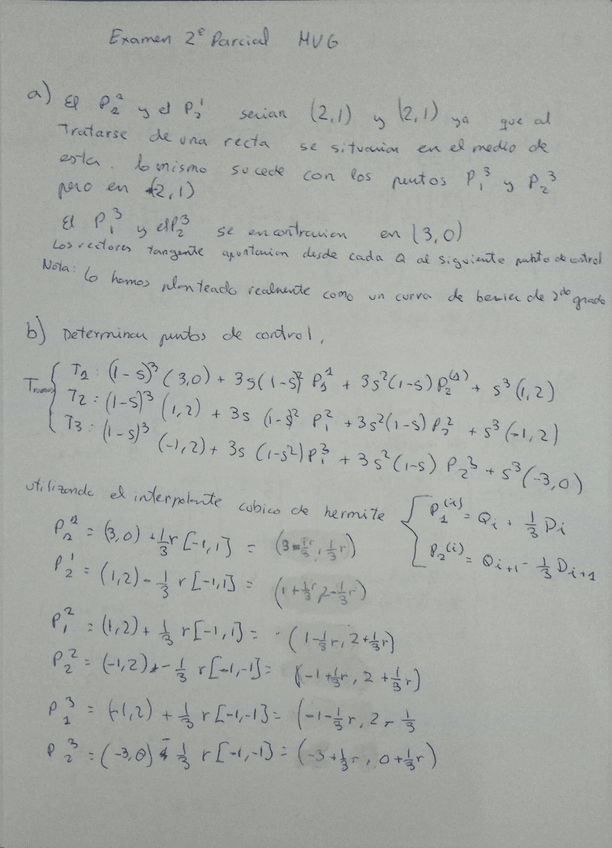 Examen 2º Parcial MVG
a) El P₂² y el P₂¹ serian (2,1) y (2,1) ya que al
tratarse de una recta se situarian en el medio de
esta. Lo mismo sucede con los puntos P₁³ y P₂³
pero en (2,1)
El P₁³ y el P₂³ se encontrarian en (3,0)
Los vectores tangente apuntarian desde cada Q al siguiente punto de control
Nota: Lo hemos planteado realmente como un curva de bezier de 2do grado
b) Determinar puntos de control,
T₁: (1-s)³ (3,0) + 3s(1-s)² P₁¹ + 3s²(1-s) P₂⁽¹⁾ + s³(1,2)
T₂: (1-s)³ (1,2) + 3s (1-s)² P₁² + 3s²(1-s) P₂² + s³(-1,2)
T₃: (1-s)³ (-1,2) + 3s (1-s²) P₁³ + 3s²(1-s) P₂³ + s³(-3,0)
utilizando el interpolante cubico de hermite { P₁⁽ⁱ⁾ = Qᵢ + 1/3 Dᵢ
P₂⁽ⁱ⁾ = Qᵢ₊₁ - 1/3 Dᵢ₊₁
= (3,0) + 1/3 r [-1,1] = (3-1/3r, 1/3 r)
P₂¹ = (1,2) - 1/3 r [-1,1] = (1+1/3r, 2-1/3r)
P₁² = (1,2) + 1/3 r [-1,1] = (1-1/3r, 2+1/3r)
P₂² = (-1,2) - 1/3 r [-1,-1] = (-1+1/3r, 2+1/3r)
P₁³ = (-1,2) + 1/3 r [-1,-1] = (-1-1/3r, 2- 1/3
P₂³ = (-3,0) - 1/3 r [-1,-1] = (-3+1/3r, 0+1/3r)